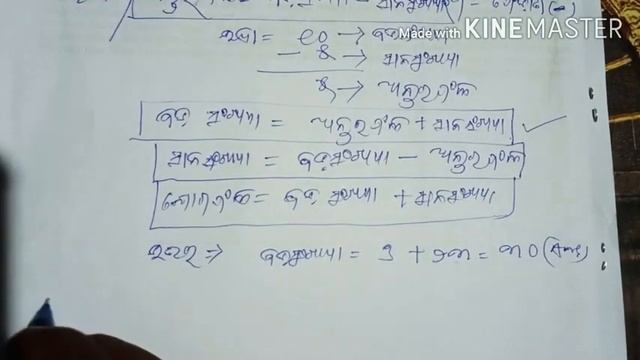 Made with KINEMASTER
ଯଥା = ୧୦ → ବଡ଼ସଂଖ୍ୟା
− ୫ → ସାନସଂଖ୍ୟା
୫ → ଅନ୍ତରଫଳ
ବଡ଼ ସଂଖ୍ୟା = ଅନ୍ତରଫଳ + ସାନସଂଖ୍ୟା
ସାନସଂଖ୍ୟା = ବଡ଼ସଂଖ୍ୟା − ଅନ୍ତରଫଳ
ଯୋଗଫଳ = ବଡ଼ ସଂଖ୍ୟା + ସାନସଂଖ୍ୟା
ଉତ୍ତର ⇒ ବଡ଼ସଂଖ୍ୟା = ୭ + ୨୩ = ୩୦ (Ans)